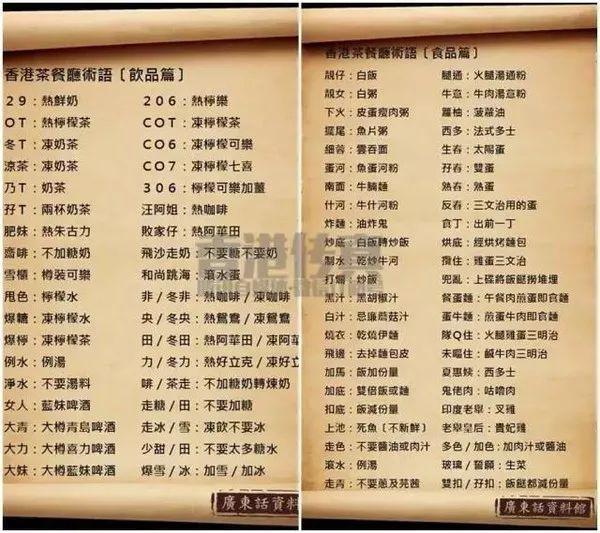 香港茶餐廳術語〔飲品篇〕
29：熱鮮奶 206：熱檸樂
OT：熱檸檬茶 COT：凍檸檬茶
冬T：凍奶茶 CO6：凍檸檬可樂
涼茶：凍奶茶 CO7：凍檸檬七喜
乃T：奶茶 306：檸檬可樂加薑
孖T：兩杯奶茶 汪阿姐：熱咖啡
肥妹：熱朱古力 敗家仔：熱阿華田
齋啡：不加糖奶 飛沙走奶：不要糖不要奶
雪櫃：樽裝可樂 和尚跳海：滾水蛋
甩色：檸檬水 非/冬非：熱咖啡/凍咖啡
爆糖：凍檸檬水 央/冬央：熱鴛鴦/凍鴛鴦
爆檸：凍檸檬茶 田/冬田：熱阿華田/凍阿
例水：例湯 力/冬力：熱好立克/凍好立
淨水：不要湯料 啡/茶走：不加糖奶轉煉奶
女人：藍妹啤酒 走糖/田：不要加糖
大青：大樽青島啤酒 走冰/雪：凍飲不要冰
大力：大樽喜力啤酒 少甜/田：不要太多糖水
大妹：大樽藍妹啤酒 爆雪/冰：加雪/加冰
廣東話資料
香港茶餐廳術語〔食品篇〕
靚仔：白飯 腿通：火腿湯通粉
靚女：白粥 牛意：牛肉湯意粉
下火：皮蛋瘦肉粥 蘿柚：菠蘿油
擺尾：魚片粥 西多：法式多士
細蓉：雲吞面 生春：太陽蛋
蛋河：魚蛋河粉 孖春：雙蛋
南面：牛腩麵 熟春：熟蛋
什河：牛什河粉 反春：三文治用的蛋
炸麵：油炸鬼 食丁：出前一丁
炒底：白飯轉炒飯 烘底：經烘烤麵包
制水：乾炒牛河 攬住：雞蛋三文治
打爛：炒飯 兜亂：上碟將飯餸撈埋
黑汁：黑胡椒汁 餐蛋麵：午餐肉煎蛋即食麵
白汁：忌廉蘑菇汁 蛋牛麵：煎蛋牛肉即食麵
燒衣：乾燒伊麵 隊Q住：火腿雞蛋三明治
飛邊：去掉麵包皮 未嘔住：鹹牛肉三明治
加馬：飯加份量 夏惠姨：西多士
加底：雙倍飯或麵 鬼佬肉：咕嚕肉
扣底：飯減份量 印度老舉：叉雞
上池：死魚〔不新鮮〕 老舉皇后：貴妃雞
走色：不要醬油或肉汁 多色/加色：加肉汁或醬油
滾水：例湯 玻璃/誓願：生菜
走青：不要蔥及芫茜 雙扣/孖扣：飯餸都減份量
廣東話資料館